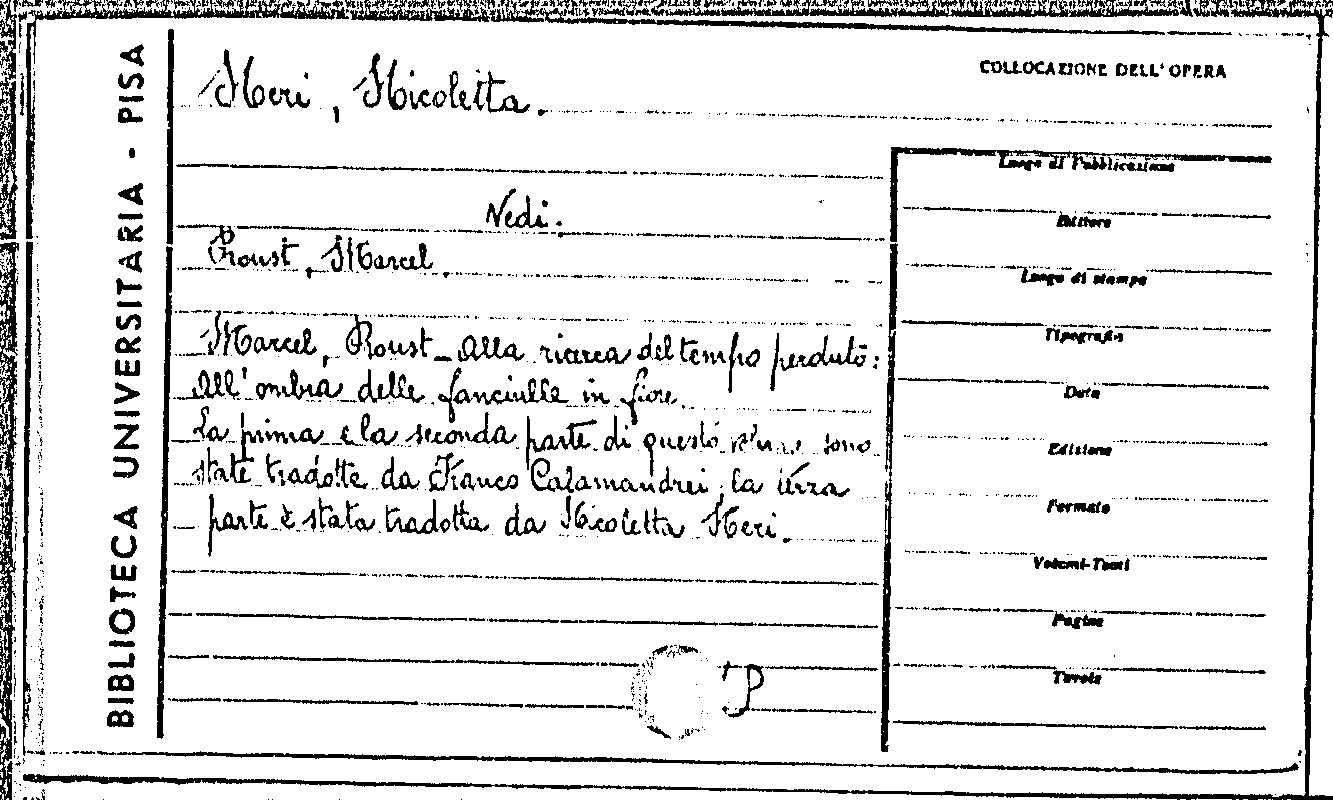 BIBLIOTECA UNIVERSITARIA - PISA
Neri, Nicoletta.
COLLOCAZIONE DELL'OPERA
Vedi:
Proust, Marcel.
Marcel, Proust - Alla ricerca del tempo perduto:
All'ombra delle fanciulle in fiore.
La prima e la seconda parte di questo sono
state tradotte da Franco Calamandrei, la terza
parte è stata tradotta da Nicoletta Neri.
P
Luogo di Pubblicazione
Editore
Luogo di stampa
Tipografia
Data
Edizione
Formato
Volumi-Tomi
Pagine
Tavole